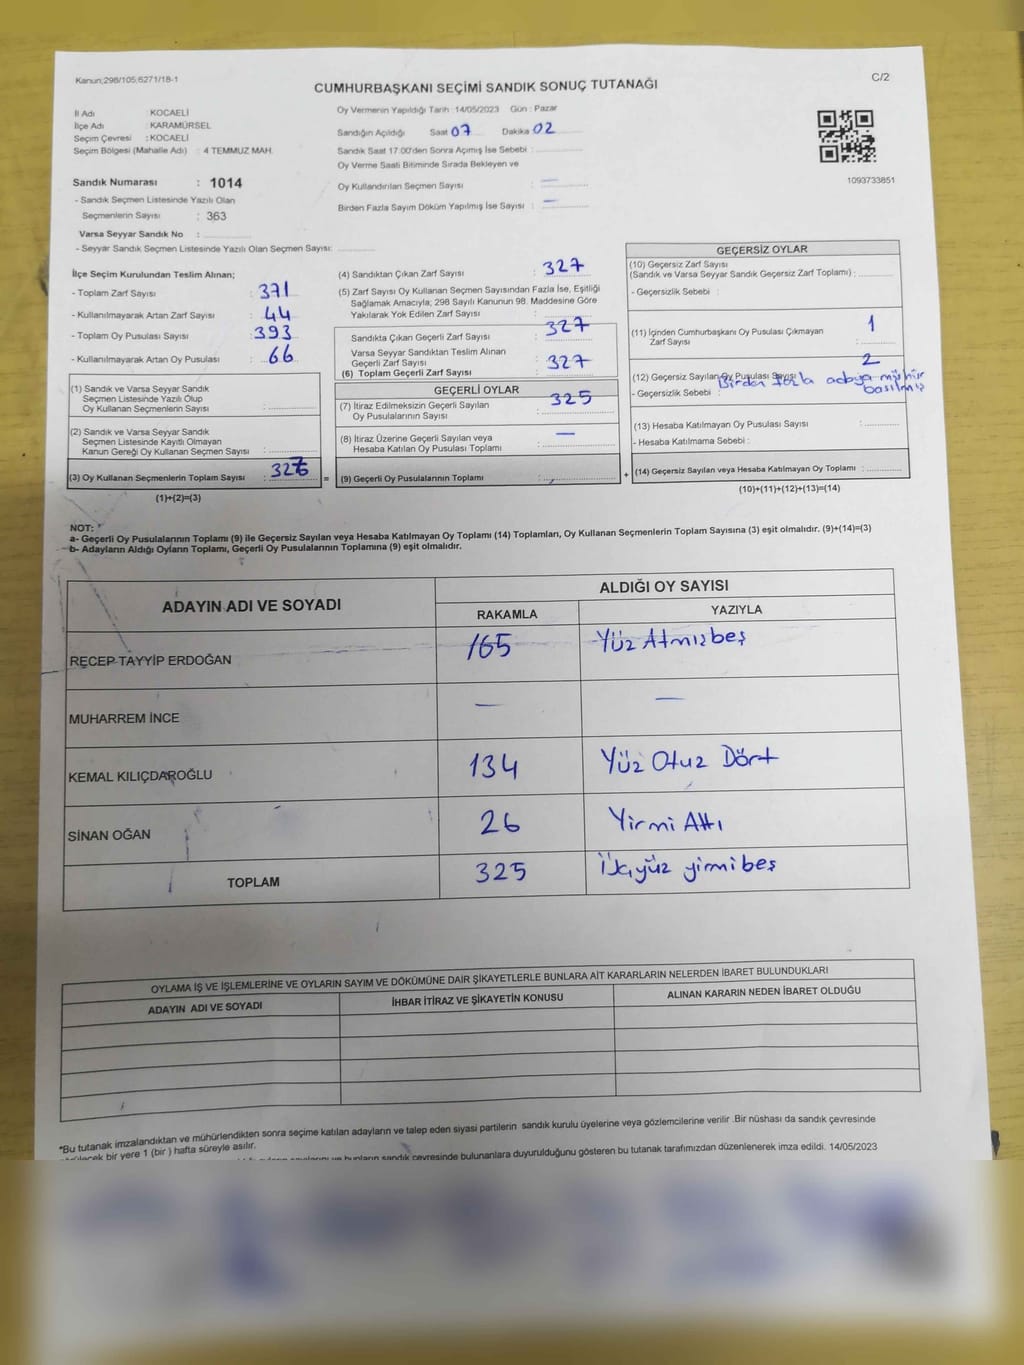 Kanun;298/105;6271/18-1
C/2
CUMHURBAŞKANI SEÇİMİ SANDIK SONUÇ TUTANAĞI
İl Adı KOCAELİ
İlçe Adı : KARAMÜRSEL
Seçim Çevresi : KOCAELİ
Seçim Bölgesi (Mahalle Adı) : 4 TEMMUZ MAH.
Sandık Numarası : 1014
- Sandık Seçmen Listesinde Yazılı Olan
Seçmenlerin Sayısı : 363
Varsa Seyyar Sandık No :
- Seyyar Sandık Seçmen Listesinde Yazılı Olan Seçmen Sayısı:
Oy Vermenin Yapıldığı Tarih : 14/05/2023 Gün : Pazar
Sandığın Açıldığı Saat 07 Dakika 02
Sandık Saat 17.00'den Sonra Açımış İse Sebebi :
Oy Verme Saati Bitiminde Sırada Bekleyen ve
Oy Kullandırılan Seçmen Sayısı : —
Birden Fazla Sayım Döküm Yapılmış İse Sayısı : —
1093733851
İlçe Seçim Kurulundan Teslim Alınan;
- Toplam Zarf Sayısı : 371
- Kullanılmayarak Artan Zarf Sayısı : 44
- Toplam Oy Pusulası Sayısı : 393
- Kullanılmayarak Artan Oy Pusulası : 66
(1) Sandık ve Varsa Seyyar Sandık
Seçmen Listesinde Yazılı Olup
Oy Kullanan Seçmenlerin Sayısı :
(2) Sandık ve Varsa Seyyar Sandık
Seçmen Listesinde Kayıtlı Olmayan
Kanun Gereği Oy Kullanan Seçmen Sayısı :
(3) Oy Kullanan Seçmenlerin Toplam Sayısı :
(1)+(2)=(3)
(4) Sandıktan Çıkan Zarf Sayısı : 327
(5) Zarf Sayısı Oy Kullanan Seçmen Sayısından Fazla İse, Eşitliği
Sağlamak Amacıyla; 298 Sayılı Kanunun 98. Maddesine Göre
Yakılarak Yok Edilen Zarf Sayısı :
Sandıkta Çıkan Geçerli Zarf Sayısı : 327
Varsa Seyyar Sandıktan Teslim Alınan
Geçerli Zarf Sayısı :
(6) Toplam Geçerli Zarf Sayısı : 327
GEÇERLİ OYLAR
(7) İtiraz Edilmeksizin Geçerli Sayılan
Oy Pusulalarının Sayısı : 325
(8) İtiraz Üzerine Geçerli Sayılan veya
Hesaba Katılan Oy Pusulası Toplamı : —
= (9) Geçerli Oy Pusulalarının Toplamı : +
GEÇERSİZ OYLAR
(10) Geçersiz Zarf Sayısı
(Sandık ve Varsa Seyyar Sandık Geçersiz Zarf Toplamı) :
- Geçersizlik Sebebi :
(11) İçinden Cumhurbaşkanı Oy Pusulası Çıkmayan
Zarf Sayısı : 1
(12) Geçersiz Sayılan Oy Pusulası Sayısı : 2
- Geçersizlik Sebebi : Birden fazla adaya mühür
basılmış
(13) Hesaba Katılmayan Oy Pusulası Sayısı :
- Hesaba Katılmama Sebebi :
(14) Geçersiz Sayılan veya Hesaba Katılmayan Oy Toplamı :
(10)+(11)+(12)+(13)=(14)
NOT:
a- Geçerli Oy Pusulalarının Toplamı (9) ile Geçersiz Sayılan veya Hesaba Katılmayan Oy Toplamı (14) Toplamları, Oy Kullanan Seçmenlerin Toplam Sayısına (3) eşit olmalıdır. (9)+(14)=(3)
b- Adayların Aldığı Oyların Toplamı, Geçerli Oy Pusulalarının Toplamına (9) eşit olmalıdır.
ADAYIN ADI VE SOYADI
ALDIĞI OY SAYISI
RAKAMLA YAZIYLA
RECEP TAYYİP ERDOĞAN 165 Yüz Atmışbeş
MUHARREM İNCE — —
KEMAL KILIÇDAROĞLU 134 Yüz Otuz Dört
SİNAN OĞAN 26 Yirmi Altı
TOPLAM 325 Üçyüz yirmibeş
OYLAMA İŞ VE İŞLEMLERİNE VE OYLARIN SAYIM VE DÖKÜMÜNE DAİR ŞİKAYETLERLE BUNLARA AİT KARARLARIN NELERDEN İBARET BULUNDUKLARI
ADAYIN ADI VE SOYADI İHBAR İTİRAZ VE ŞİKAYETİN KONUSU ALINAN KARARIN NEDEN İBARET OLDUĞU
*Bu tutanak imzalandıktan ve mühürlendikten sonra seçime katılan adayların ve talep eden siyasi partilerin sandık kurulu üyelerine veya gözlemcilerine verilir .Bir nüshası da sandık çevresinde
bir yere 1 (bir ) hafta süreyle asılır.
ve bunların sandık çevresinde bulunanlara duyurulduğunu gösteren bu tutanak tarafımızdan düzenlenerek imza edildi. 14/05/2023